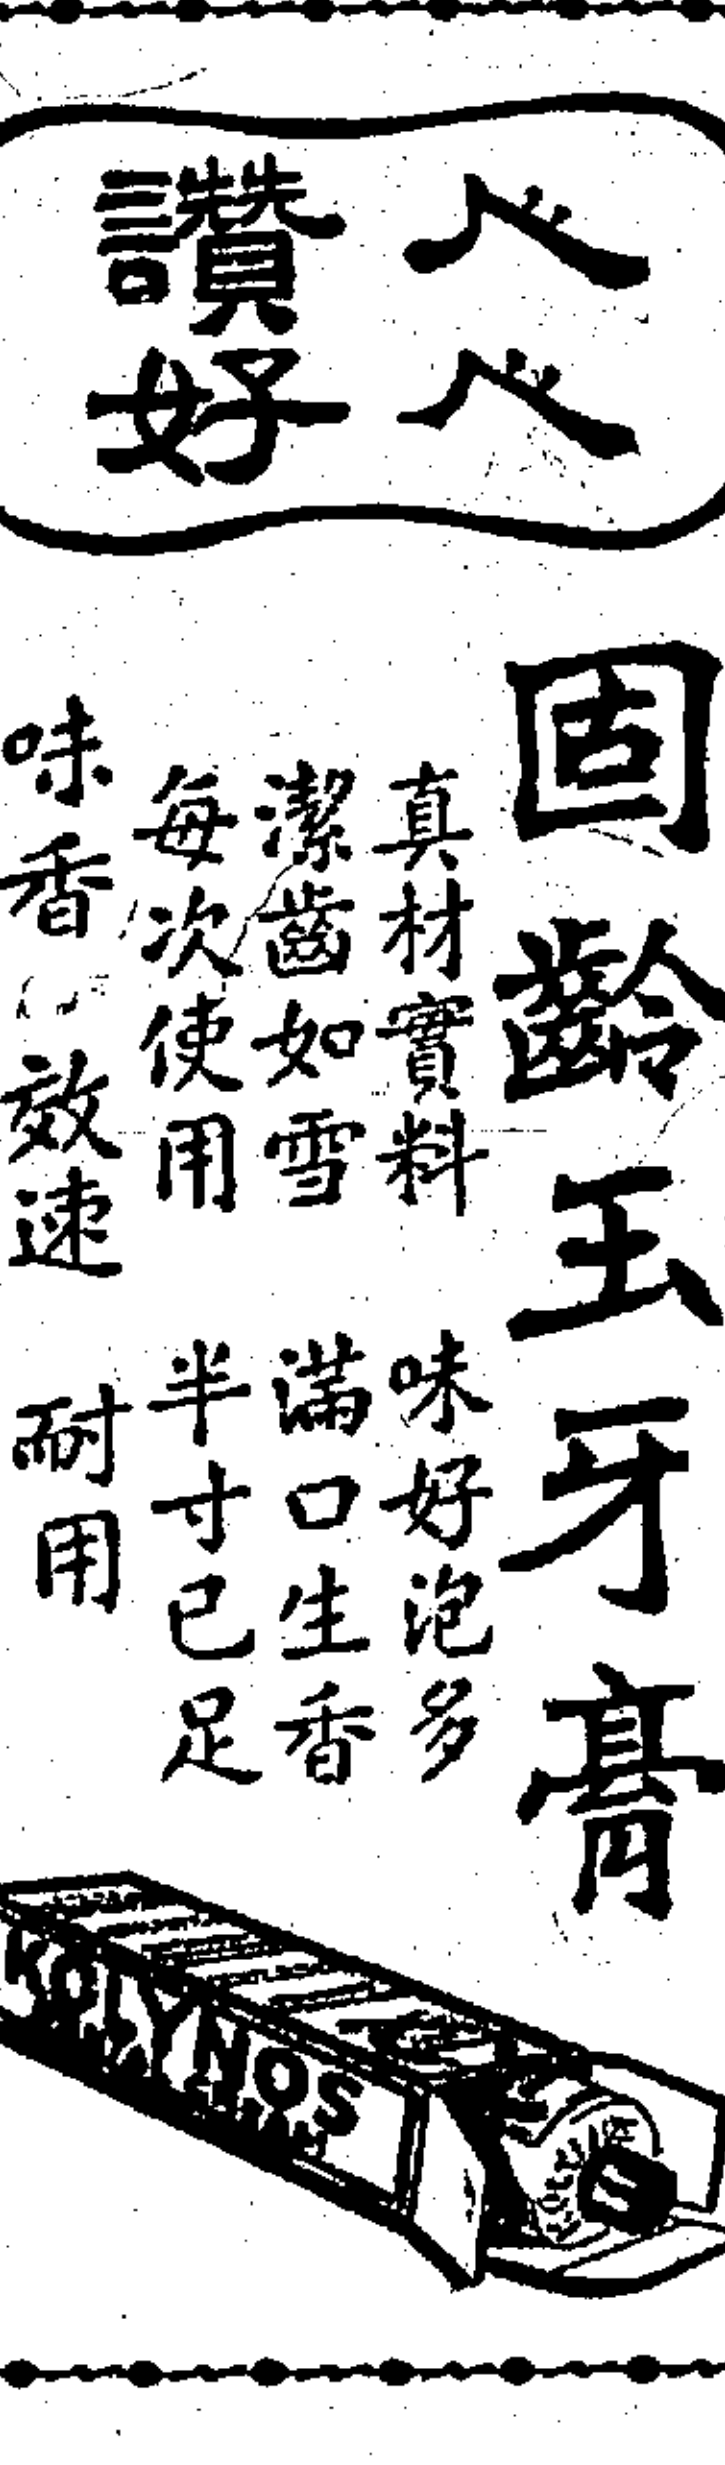 人人
讚好
固齡玉牙膏
真材實料 味好泡多
潔齒如雪 滿口生香
每次使用 半寸已足
味香 效速 耐用
KOLYNOS